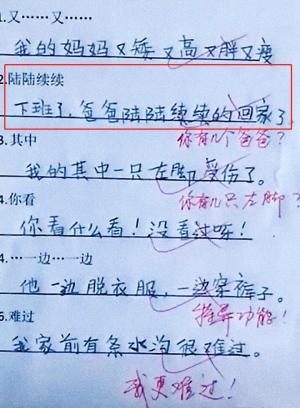 1.又……又……
我的妈妈又矮又高又胖又瘦
2.陆陆续续
下班了,爸爸陆陆续续的回家了。
你有几个爸爸?
3.其中
我的其中一只左脚受伤了。
你有几只左脚?
4.你看
你看什么看!没看过呀!
4.…一边…一边
他一边脱衣服,一边穿裤子。
推异功能!
5.难过
我家前有条水沟很难过。
我更难过!